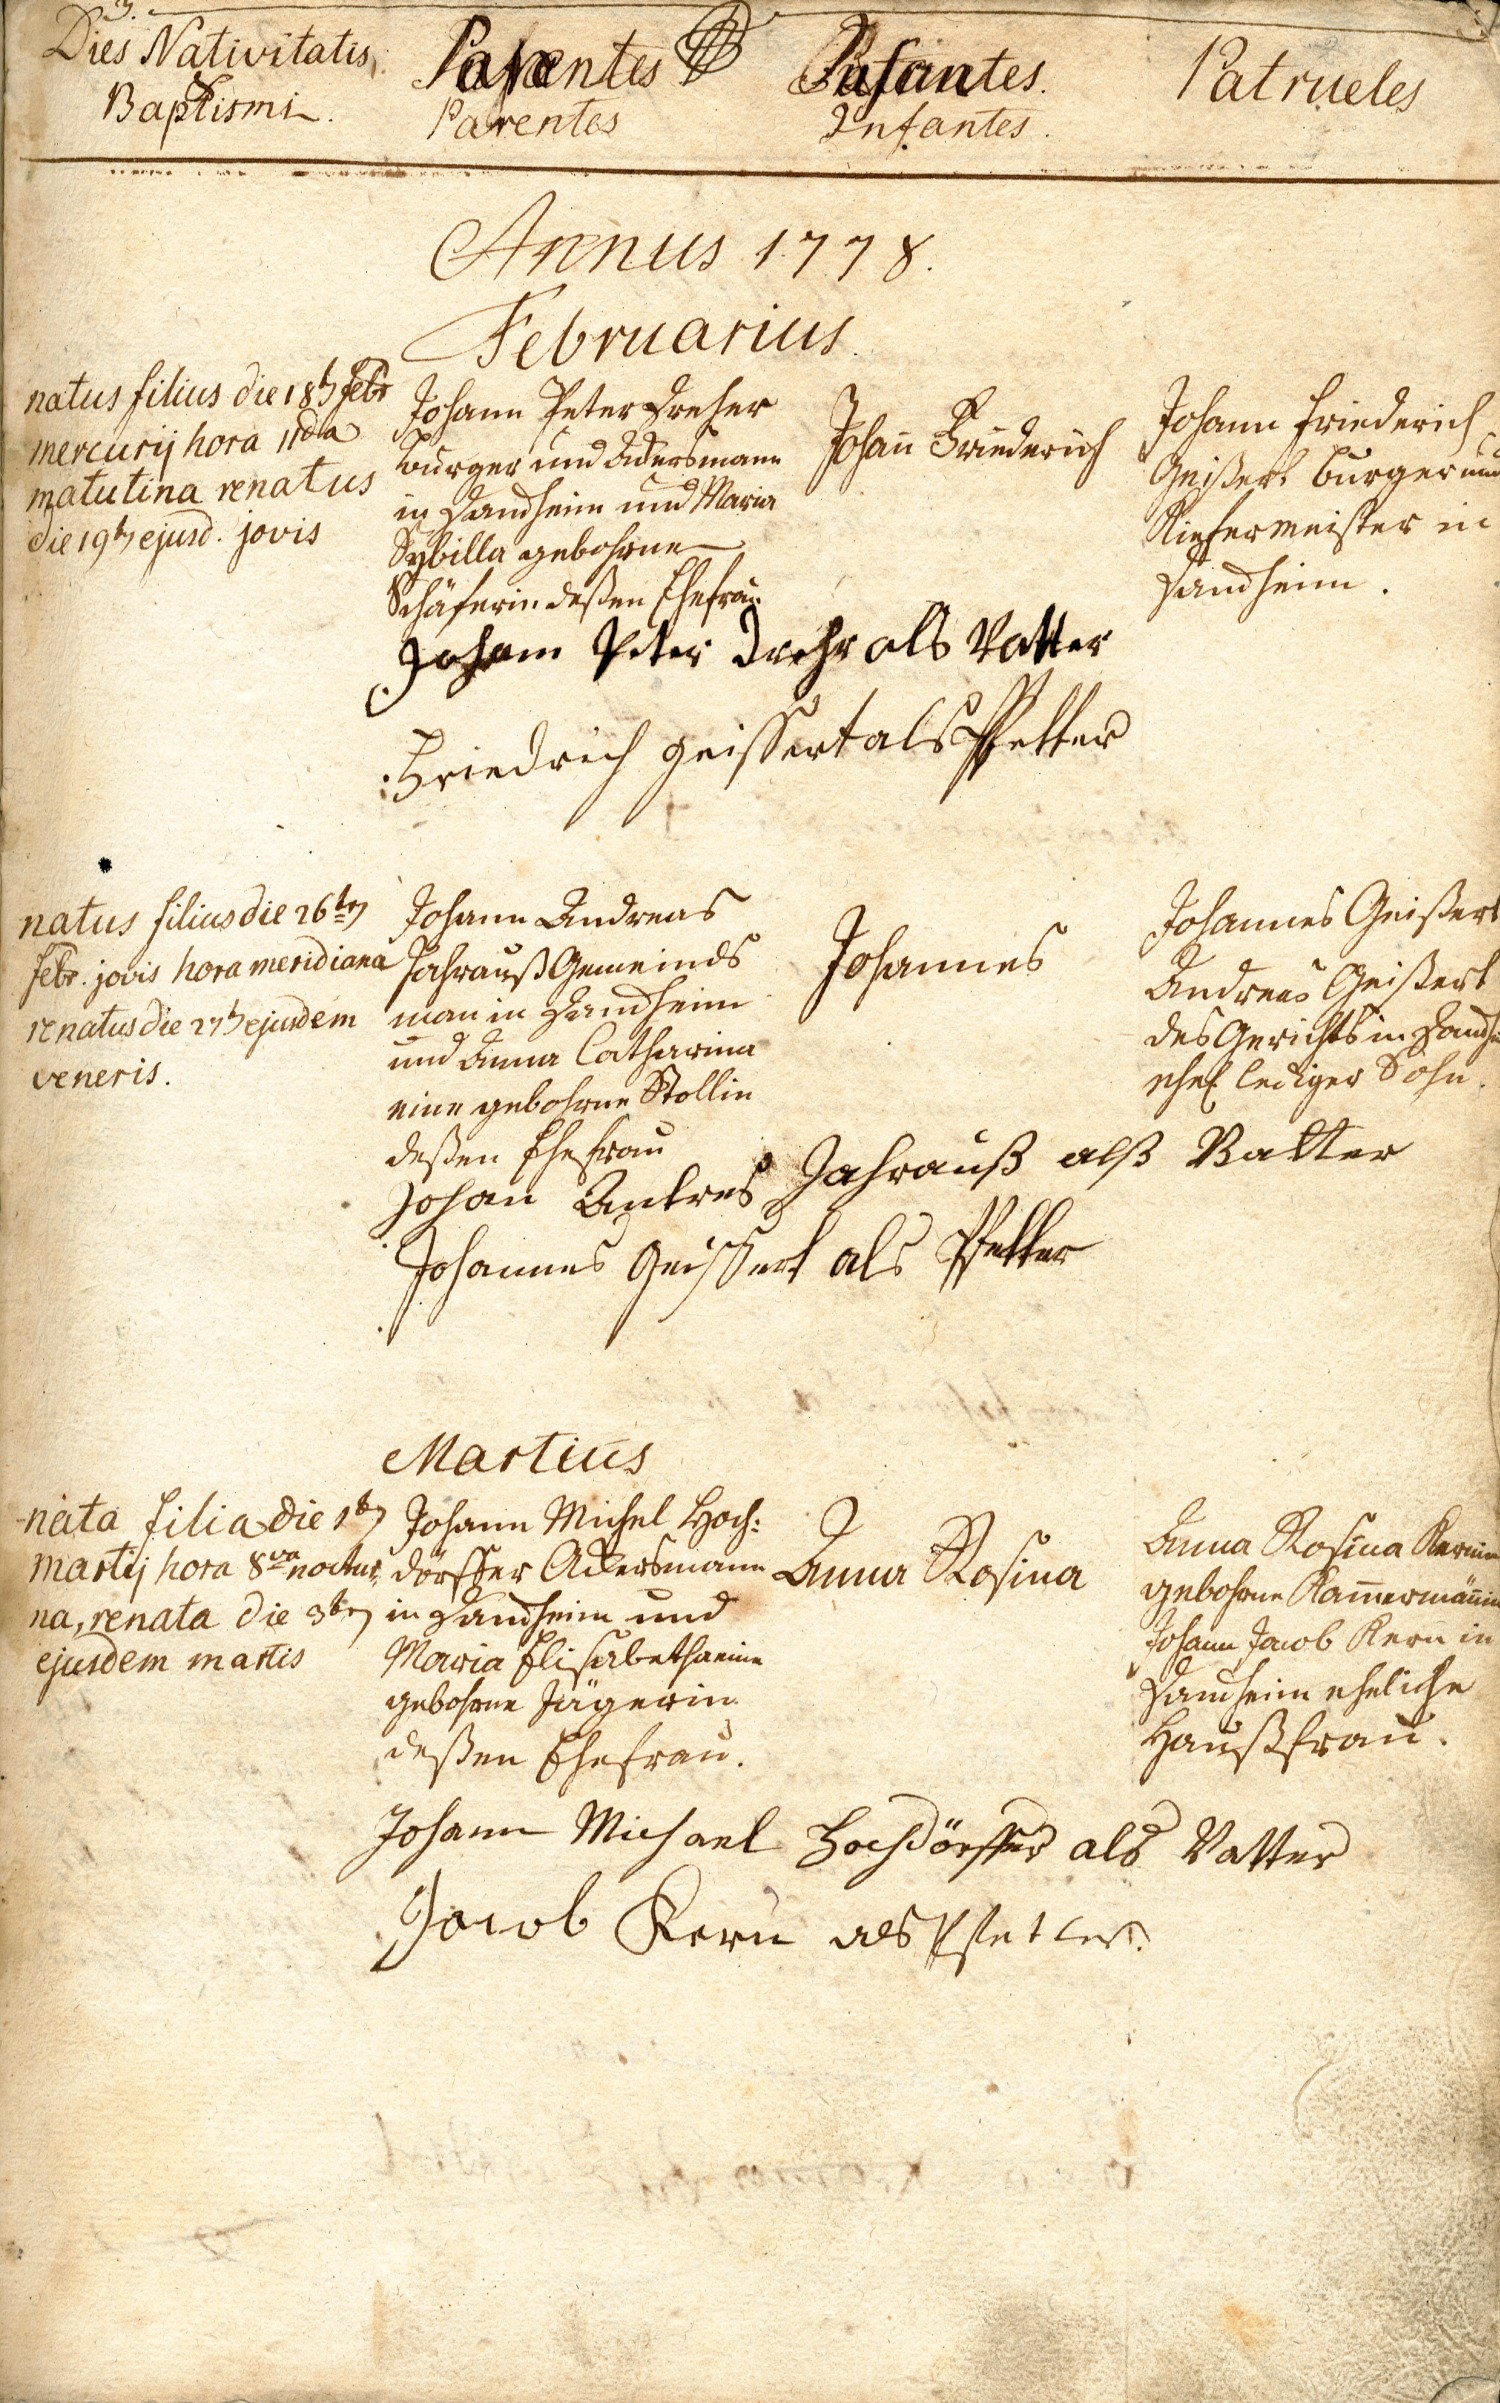 3.
Dies Nativitatis,
Baptismi.
Parentes
Parentes
Infantes.
Infantes.
Patrueles
Annus 1778.
Februarius.
natus filius die 18t febr
mercurij hora 11da
matutina renatus
die 19t ejusd. jovis
Johann Peter Dreher
burger und Ackersmann
in Dandheim und Maria
Sybilla gebohrne
Schäferin deßen Ehefrau
Johañ Friederich
Johann Friederich
Geißert burger und
Kiefermeister in
Dandheim.
Johann Peter Drehr als Vatter
Friedrich geissert als Pfetter
natus filius die 26t
febr. jovis hora meridiana
renatus die 27t ejusdem
veneris.
Johann Andreas
Jahrauß Gemeinds
man in Dandheim
und Anna Catharina
eine gebohrne Stollin
deßen Ehefrau
Johannes
Johannes Geißert
Andreas Geißert
des Gerichts in Dandh
ehel lediger Sohn.
Johan Antres Jahrauß alß Vatter
Johannes Geissert als Pfetter
Martius
nata filia die 1t
martij hora 8va noctur,
na, renata die 3t
ejusdem martis
Johann Michel Hoch:
dörffer Ackersmann
in Dandheim und
Maria Elisabetha eine
gebohrne Jägerin
deßen Ehefrau.
Anna Rosina
Anna Rosina Kernin
gebohrne Kam̃ermäñin
Johann Jacob Kern in
Dandheim eheliche
Haußfrau.
Johann Michael Hochdörffer als Vatter
Jacob Kern als Pfetter.